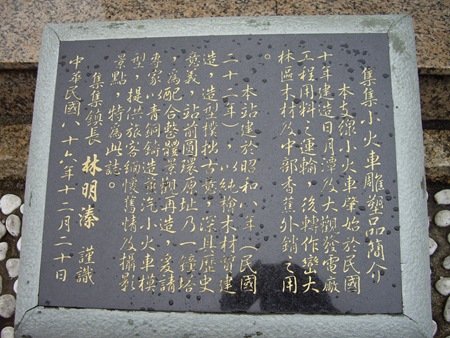 集集小火車雕塑品簡介
本支線小火車肇始於民國
十年建造日月潭及大觀發電廠
工程用料之運輸，後轉作巒大
林區木材及中部香蕉外銷之用
。
本站建於昭和八年（民國
二十二年），以純檜木材質建
造，造型樸拙古意，深具歷史
意義，站前圓環原址乃一鐘塔
，為配合整體景觀再造，爰請
專家以青銅鑄造蒸汽小火車模
型，提供旅客緬懷舊情及攝影
景點，特為此誌。
集集鎮長 林明溱 謹識
中華民國八十六年十二月二十日